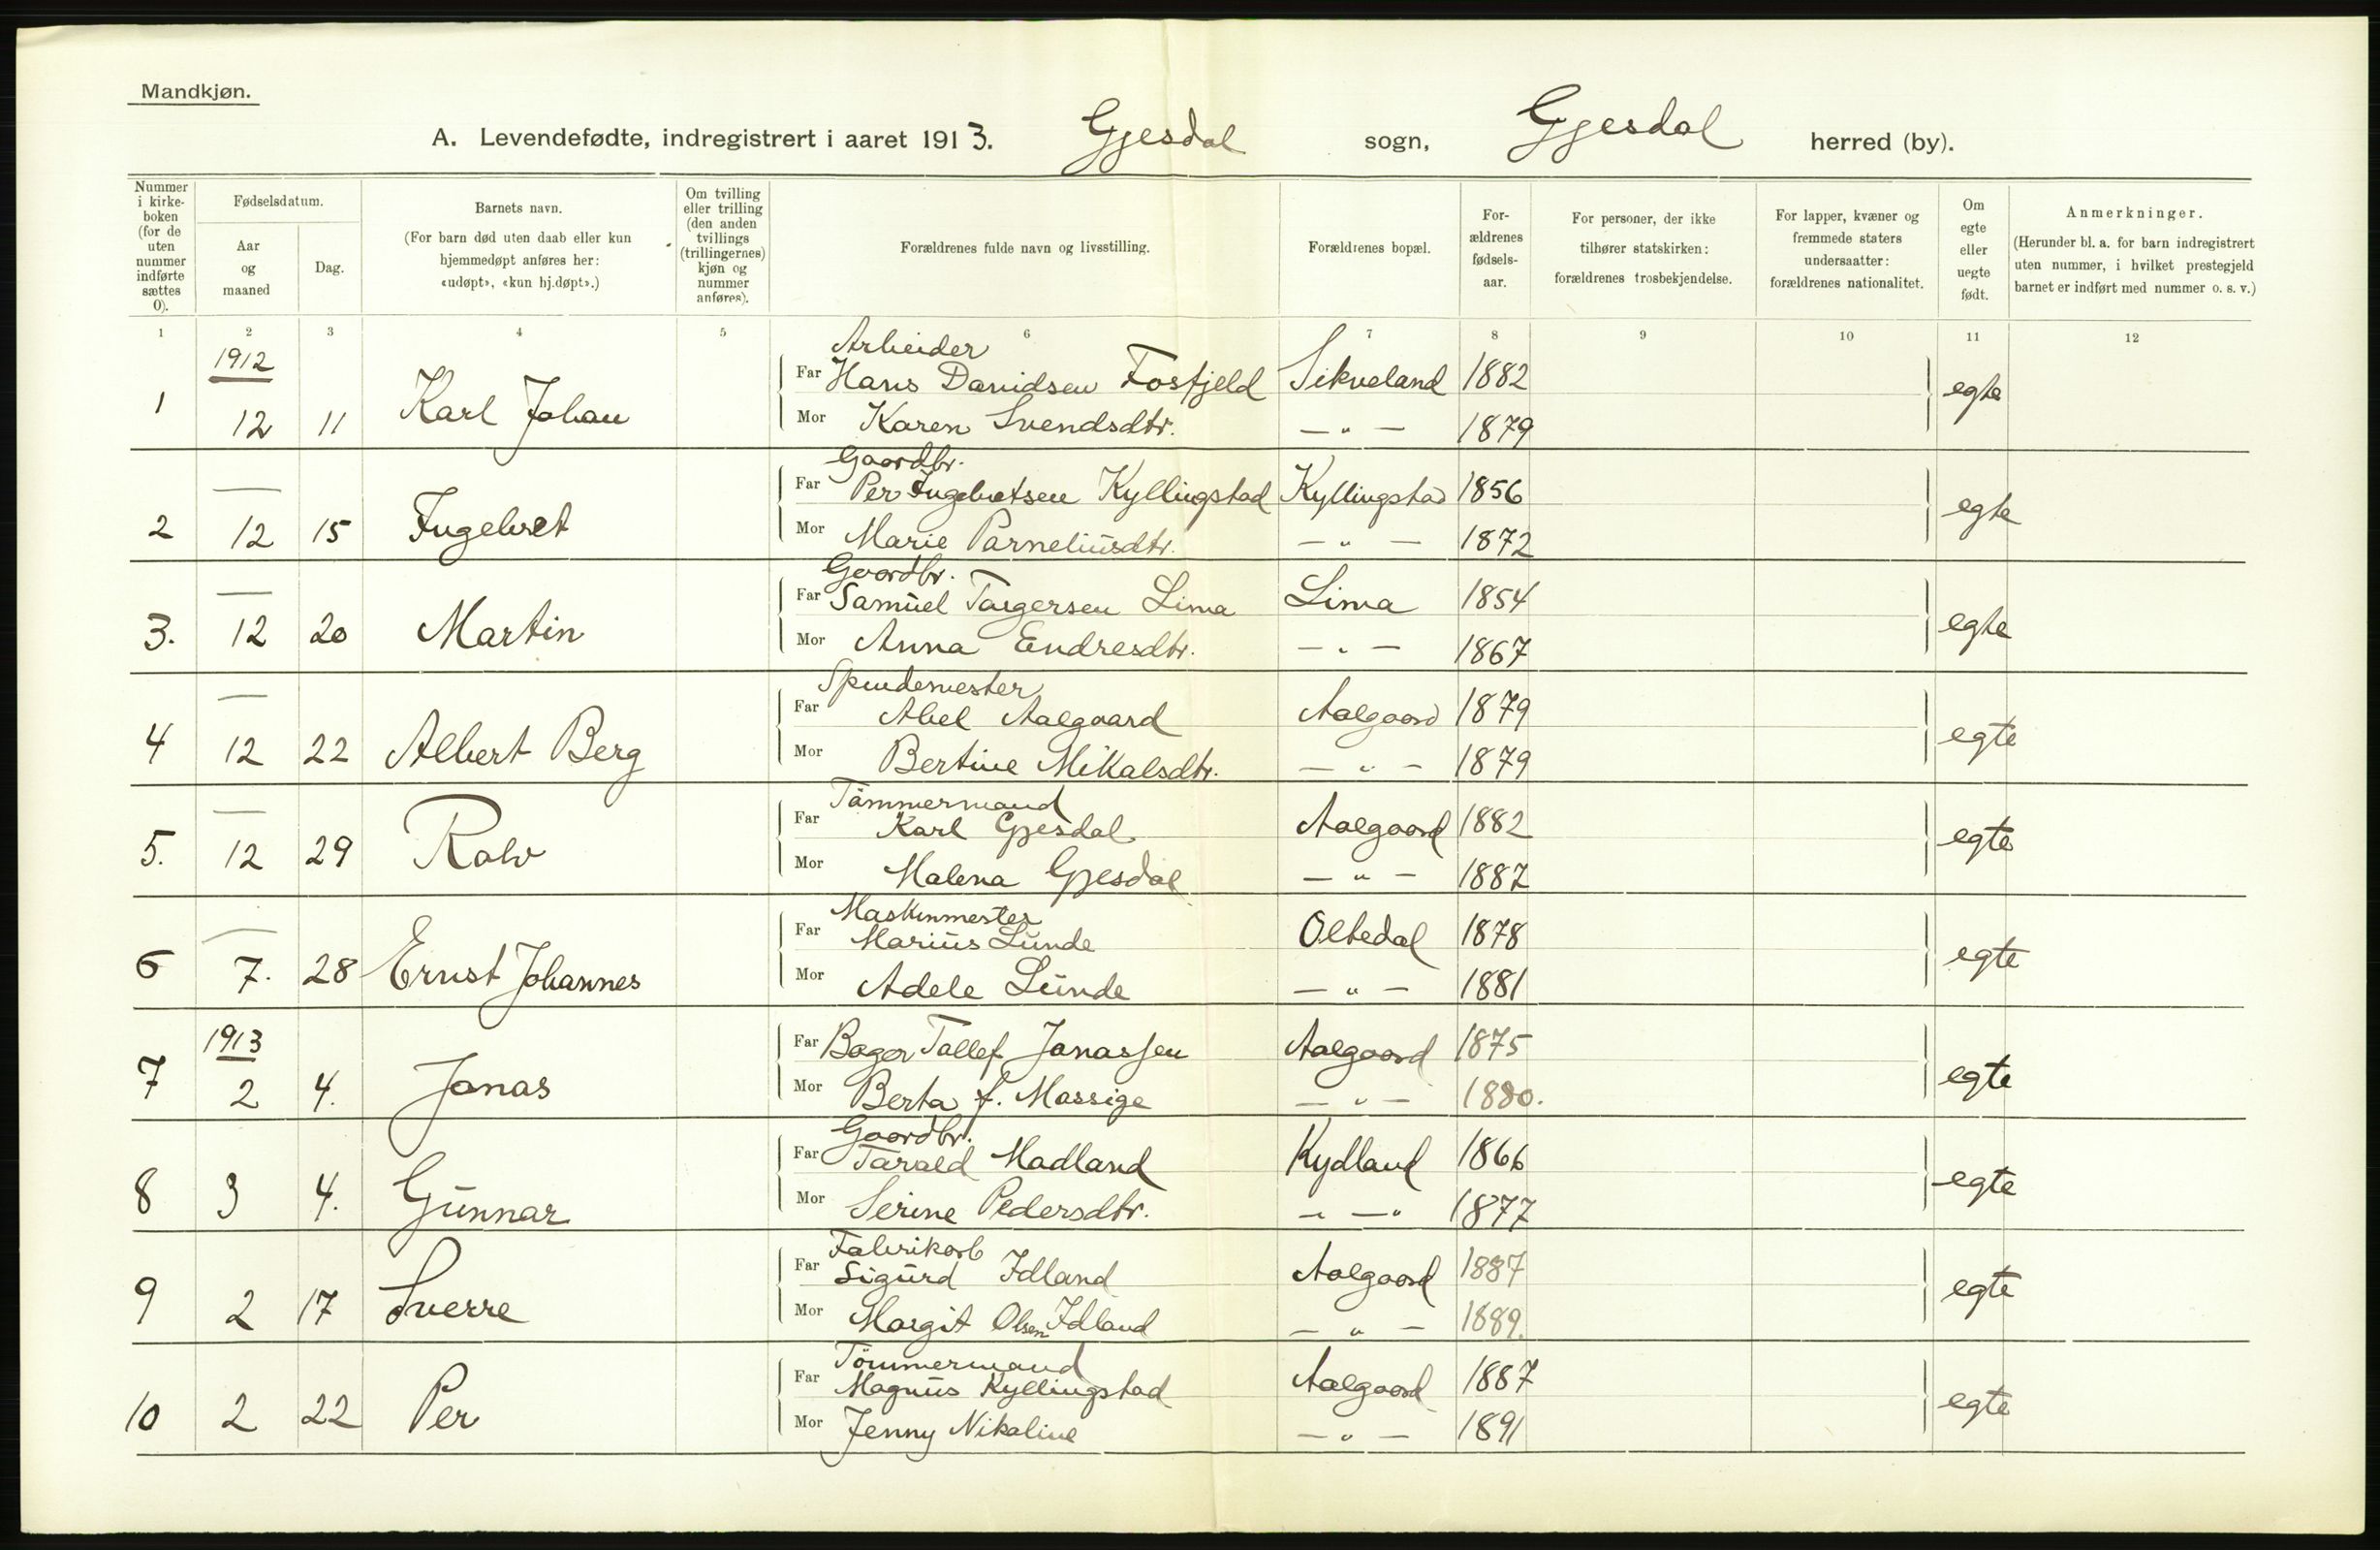 Mandkjøn.
A. Levendefødte, indregistrert i aaret 1913. Gjesdal sogn, Gjesdal herred (by).
Nummer i kirke-boken (for de uten nummer indførte sættes 0).
Fødselsdatum.
Aar og maaned
Dag.
Barnets navn.
(For barn død uten daab eller kun hjemmedøpt anføres her: «udøpt», «kun hj.døpt».)
Om tvilling eller trilling (den anden tvillings (trillingernes) kjøn og nummer anføres).
Forældrenes fulde navn og livsstilling.
Forældrenes bopæl.
For-ældrenes fødsels-aar.
For personer, der ikke tilhører statskirken: forældrenes trosbekjendelse.
For lapper, kvæner og fremmede staters undersaatter: forældrenes nationalitet.
Om egte eller uegte født.
Anmerkninger.
(Herunder bl. a. for barn indregistrert uten nummer, i hvilket prestegjeld barnet er indført med nummer o. s. v.)
1 2 3 4 5 6 7 8 9 10 11 12
1912
Arbeider
Far Hans Davidsen Fosfjeld Sikveland 1882
1 12 11 Karl Johan egte
Mor Karen Svendsdtr. — " — 1879
Gaardbr.
Far Per Ingebretsen Kyllingstad Kyllingstad 1856
2 — 12 15 Ingebret egte
Mor Marie Parneliusdtr. — " — 1872
Gaardbr.
Far Samuel Torgersen Lima Lima 1854
3. — 12 20 Martin egte
Mor Anna Endresdtr. — " — 1867
Spindemester
Far Abel Aalgaard Aalgaard 1879
4 — 12 22 Albert Berg egte
Mor Bertine Mikalsdtr. — " — 1879
Tömmermand
Far Karl Gjesdal Aalgaard 1882
5. — 12 29 Ralv egte
Mor Malena Gjesdal — " — 1887
Maskinmester
Far Marius Lunde Oltedal 1878
6 — 7. 28 Ernst Johannes egte
Mor Adele Lunde — " — 1881
1913
Far Bager Tollef Jonassen Aalgaard 1875
7 2 4. Jonas egte
Mor Berta f. Massige — " — 1880.
Gaardbr.
Far Tarald Madland Kydland 1866
8 3 4. Gunnar egte
Mor Serine Pedersdtr. — " — " 1877
Fabrikarb
Far Sigurd Idland Aalgaard 1887
9 2 17 Sverre egte
Mor Margit Olsen Idland — " — 1889.
Tömmermand
Far Magnus Kyllingstad Aalgaard 1887
10 2 22 Per egte
Mor Jenny Nikoline — " — 1891